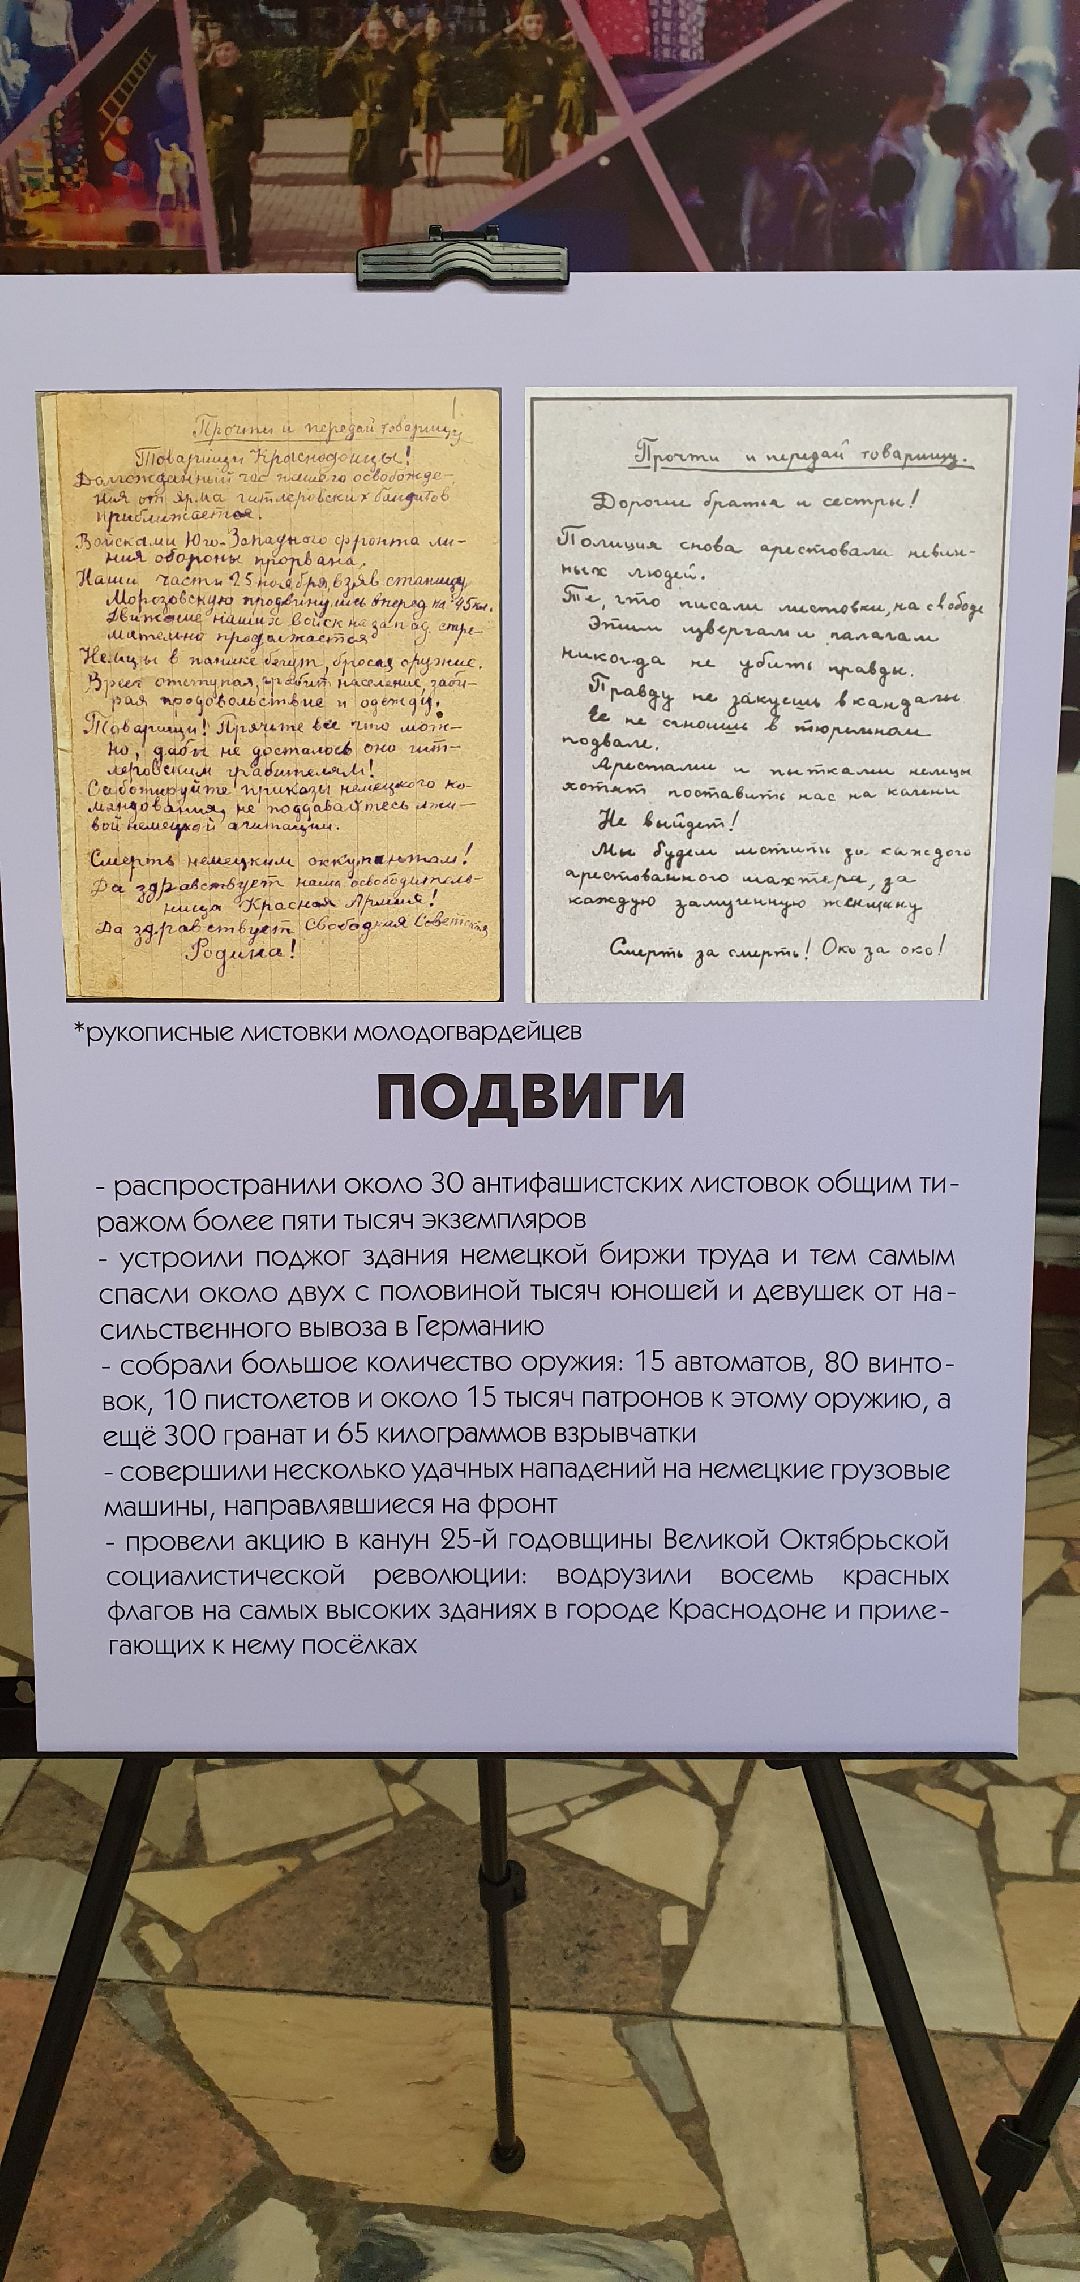 Прочти и передай товарищу
Товарищи Краснодонцы!
Долгожданный час нашего освобожде-
ния от ярма гитлеровских бандитов
приближается.
Войсками Юго-Западного фронта ли-
ния обороны прорвана.
Наши части 25 ноября, взяв станицу
Морозовскую продвинулись вперед на 45 км.
Движение наших войск на запад стре-
мительно продолжается
Немцы в панике бегут, бросая оружие.
Враг отступая, грабит население, заби-
рая продовольствие и одежду.
Товарищи! Прячьте всё что мож-
но, дабы не досталось оно гит-
леровским грабителям!
Саботируйте приказы немецкого ко-
мандования, не поддавайтесь лжи-
вой немецкой агитации.
Смерть немецким оккупантам!
Да здравствует наша освободитель-
ница Красная Армия!
Да здравствует Свободная Советская
Родина!
Прочти и передай товарищу.
Дорогие братья и сестры!
Полиция снова арестовали невин-
ных людей.
Те, что писали листовки, на свободе
Этим извергам и палачам
никогда не убить правды.
Правду не закуешь в кандалы
Ее не сгноишь в тюремном
подвале.
Арестами и пытками немцы
хотят поставить нас на колени
Не выйдет!
Мы будем мстить за каждого
арестованного шахтера, за
каждую замученную женщину
Смерть за смерть! Око за око!
*рукописные листовки молодогвардейцев
ПОДВИГИ
- распространили около 30 антифашистских листовок общим ти-
ражом более пяти тысяч экземпляров
- устроили поджог здания немецкой биржи труда и тем самым
спасли около двух с половиной тысяч юношей и девушек от на-
сильственного вывоза в Германию
- собрали большое количество оружия: 15 автоматов, 80 винто-
вок, 10 пистолетов и около 15 тысяч патронов к этому оружию, а
ещё 300 гранат и 65 килограммов взрывчатки
- совершили несколько удачных нападений на немецкие грузовые
машины, направлявшиеся на фронт
- провели акцию в канун 25-й годовщины Великой Октябрьской
социалистической революции: водрузили восемь красных
флагов на самых высоких зданиях в городе Краснодоне и приле-
гающих к нему посёлках